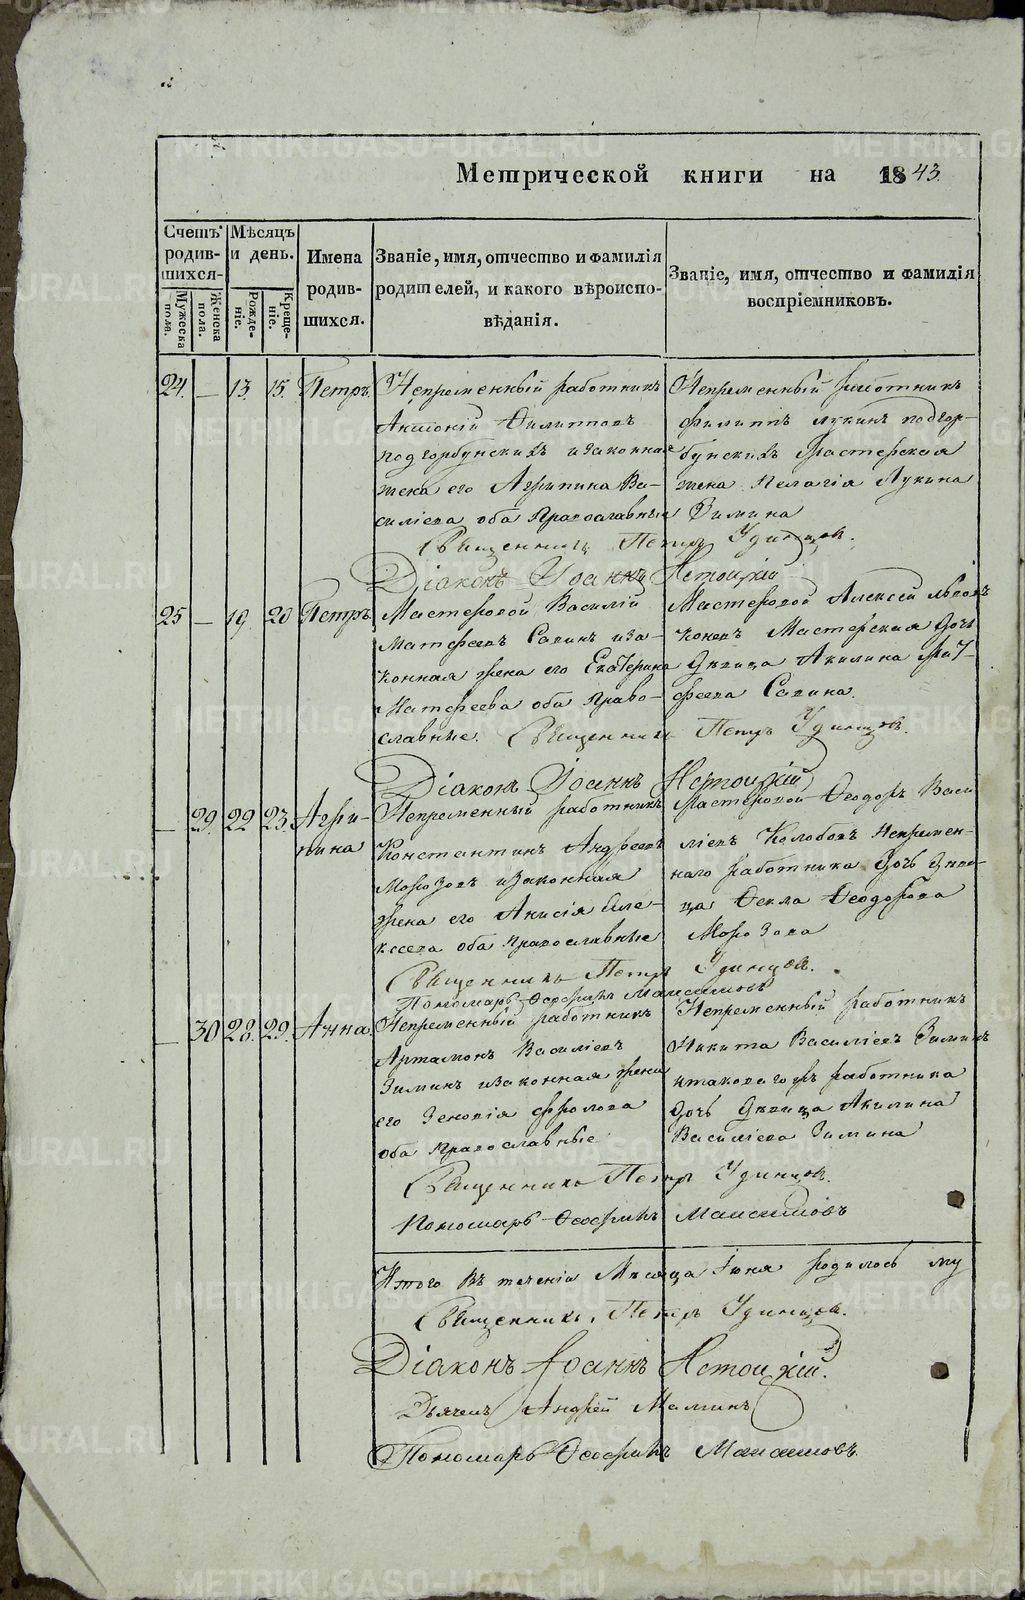 Метрической книги на 1843.
Счетъ родившихся
Мѣсяцъ и день.
Имена родившихся.
Званіе, имя, отчество и фамилія родителей, и какого вѣроисповѣданія.
Званіе, имя, отчество и фамилія воспріемниковъ.
Мужеска пола.
Женска пола.
Рожденіе.
Крещеніе.
24. — 13. 15. Петръ
Непременный работникъ
Антоній Филипповъ
подгорбунскихъ изаконная
жена его Агрипина Ва-
силіева оба Православныя
Непременный работникъ
Филиппъ Лукинъ подгор-
бунскихъ Мастерская
жена Пелагія Лукина
Зимина
Священникъ Петръ Удинцов.
Діаконъ Іоаннъ
25 — 19. 20 Петръ
Мастеровой Василій
Матфеевъ Сапинъ иза-
конная жена его Екатерина
Матфеева оба Право-
славные.
Мастеровой Алексей
Мастерская дочь
Девица Акилина Мат-
феева Сапина.
Священникъ Петръ Удинцов.
Діаконъ Іоаннъ
— 29. 22 23 Агри-
пина
Непременный работникъ
Константинъ Андреевъ
Морозовъ изаконная
жена его Анисія Але-
ксеева оба православные
Мастеровой Феодоръ Васи
ліевъ Колобовъ Непремен-
наго работника дочь Деви-
ца Фекла Феодорова
Морозова
Священникъ Петръ Удинцов.
Пономарь Феофилъ Максимовъ
— 30 28. 29. Анна.
Непременный работникъ
Артамонъ Василіевъ
Зиминъ изаконная жена
его Зеновія Фролова
оба православные
Непременный работникъ
Никита Василіевъ Зиминъ
итаковагожъ работника
дочь Девица Акилина
Василіева Зимина
Священникъ Петръ Удинцов.
Пономарь Феофилъ Максимовъ
Итого Въ теченіи Месяца Іюня родилось му
Священникъ Петръ Удинцов.
Діаконъ Іоаннъ
Дьячекъ Андрей Маминъ
Пономарь Феофилъ Максимовъ
METRIKI.GASO-URAL.RU